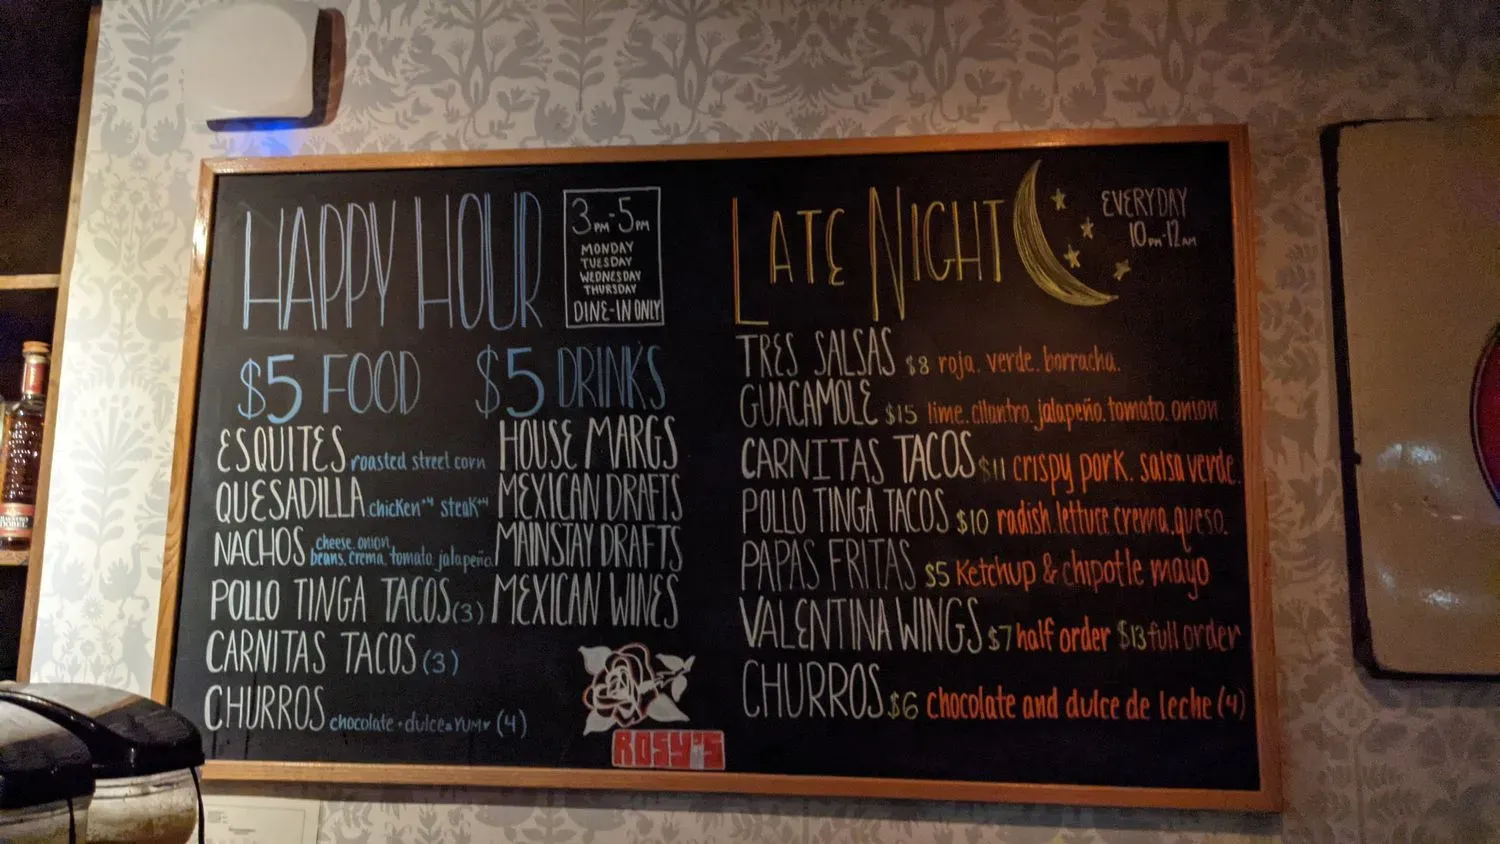 HAPPY HOUR
3PM-5PM
MONDAY
TUESDAY
WEDNESDAY
THURSDAY
DINE-IN ONLY
$5 FOOD
ESQUITES roasted street corn
QUESADILLA chicken+4 steak+4
NACHOS cheese. onion.
beans. crema. tomato. jalapeño.
POLLO TINGA TACOS (3)
CARNITAS TACOS (3)
CHURROS chocolate + dulce YUM (4)
$5 DRINKS
HOUSE MARGS
MEXICAN DRAFTS
MAINSTAY DRAFTS
MEXICAN WINES
ROSY'S
LATE NIGHT
EVERYDAY
10PM-12AM
TRES SALSAS $8 roja. verde. borracha.
GUACAMOLE $15 lime. cilantro. jalapeño. tomato. onion
CARNITAS TACOS $11 crispy pork. salsa verde.
POLLO TINGA TACOS $10 radish. lettuce. crema. queso.
PAPAS FRITAS $5 Ketchup & chipotle mayo
VALENTINA WINGS $7 half order $13 full order
CHURROS $6 chocolate and dulce de leche (4)